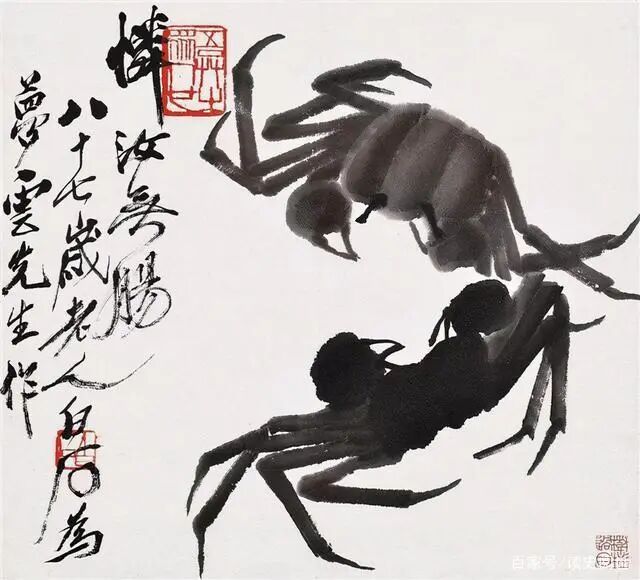 憐汝無腸
八十七歲老人白石為
夢雲先生作
百家号/读史